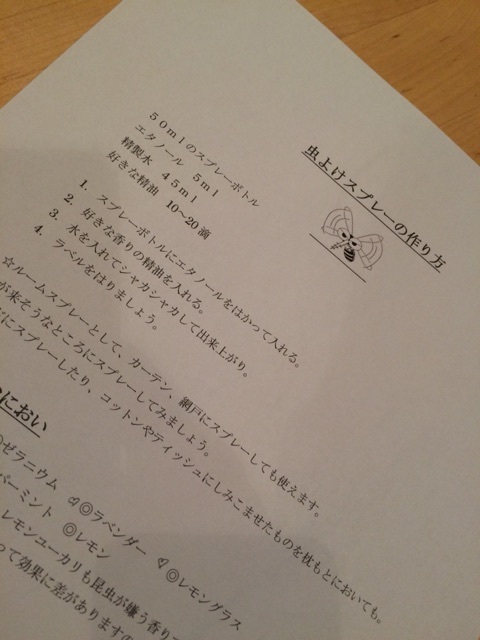 虫よけスプレーの作り方
50mlのスプレーボトル
エタノール　5ml
精製水　45ml
好きな精油　10～20滴
1．スプレーボトルにエタノールをはかって入れる。
2．好きな香りの精油を入れる。
3．水を入れてシャカシャカして出来上がり。
4．ラベルをはりましょう。
☆ルームスプレーとして、カーテン、網戸にスプレーしても使えます。
が来そうなところにスプレーしてみましょう。
にスプレーしたり、コットンやティッシュにしみこませたものを枕もとにおいても。
におい
◎ゼラニウム　♡◎ラベンダー　♡◎レモングラス
パーミント　◎レモン
レモンユーカリも昆虫が嫌う香り
って効果に差がありますの